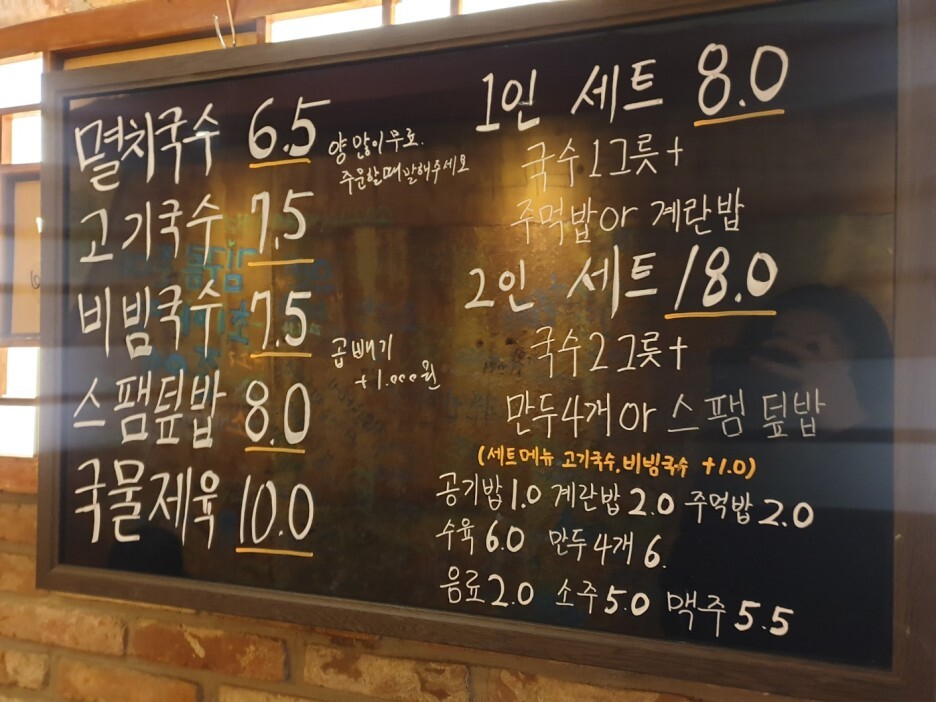 멸치국수 6.5
양 많이 무료.
주문할때 말해주세요
고기국수 7.5
비빔국수 7.5
곱배기
+1.000원
스팸덮밥 8.0
국물제육 10.0
1인 세트 8.0
국수1그릇+
주먹밥or 계란밥
2인 세트 18.0
국수2그릇+
만두4개or 스팸덮밥
(세트메뉴 고기국수.비빔국수 +1.0)
공기밥1.0 계란밥 2.0 주먹밥2.0
수육 6.0 만두4개 6.
음료2.0 소주5.0 맥주 5.5